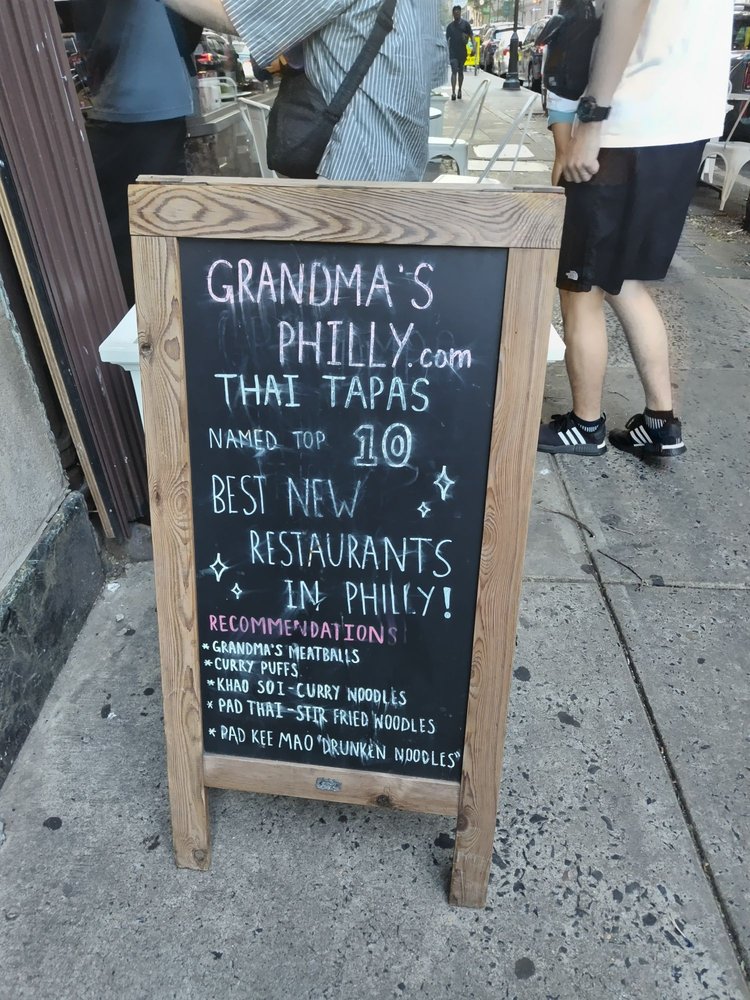 GRANDMA'S
PHILLY.com
THAI TAPAS
NAMED TOP 10
BEST NEW
RESTAURANTS
IN PHILLY!
RECOMMENDATIONS
*GRANDMA'S MEATBALLS
*CURRY PUFFS
*KHAO SOI-CURRY NOODLES
*PAD THAI-STIR FRIED NOODLES
*PAD KEE MAO "DRUNKEN NOODLES"